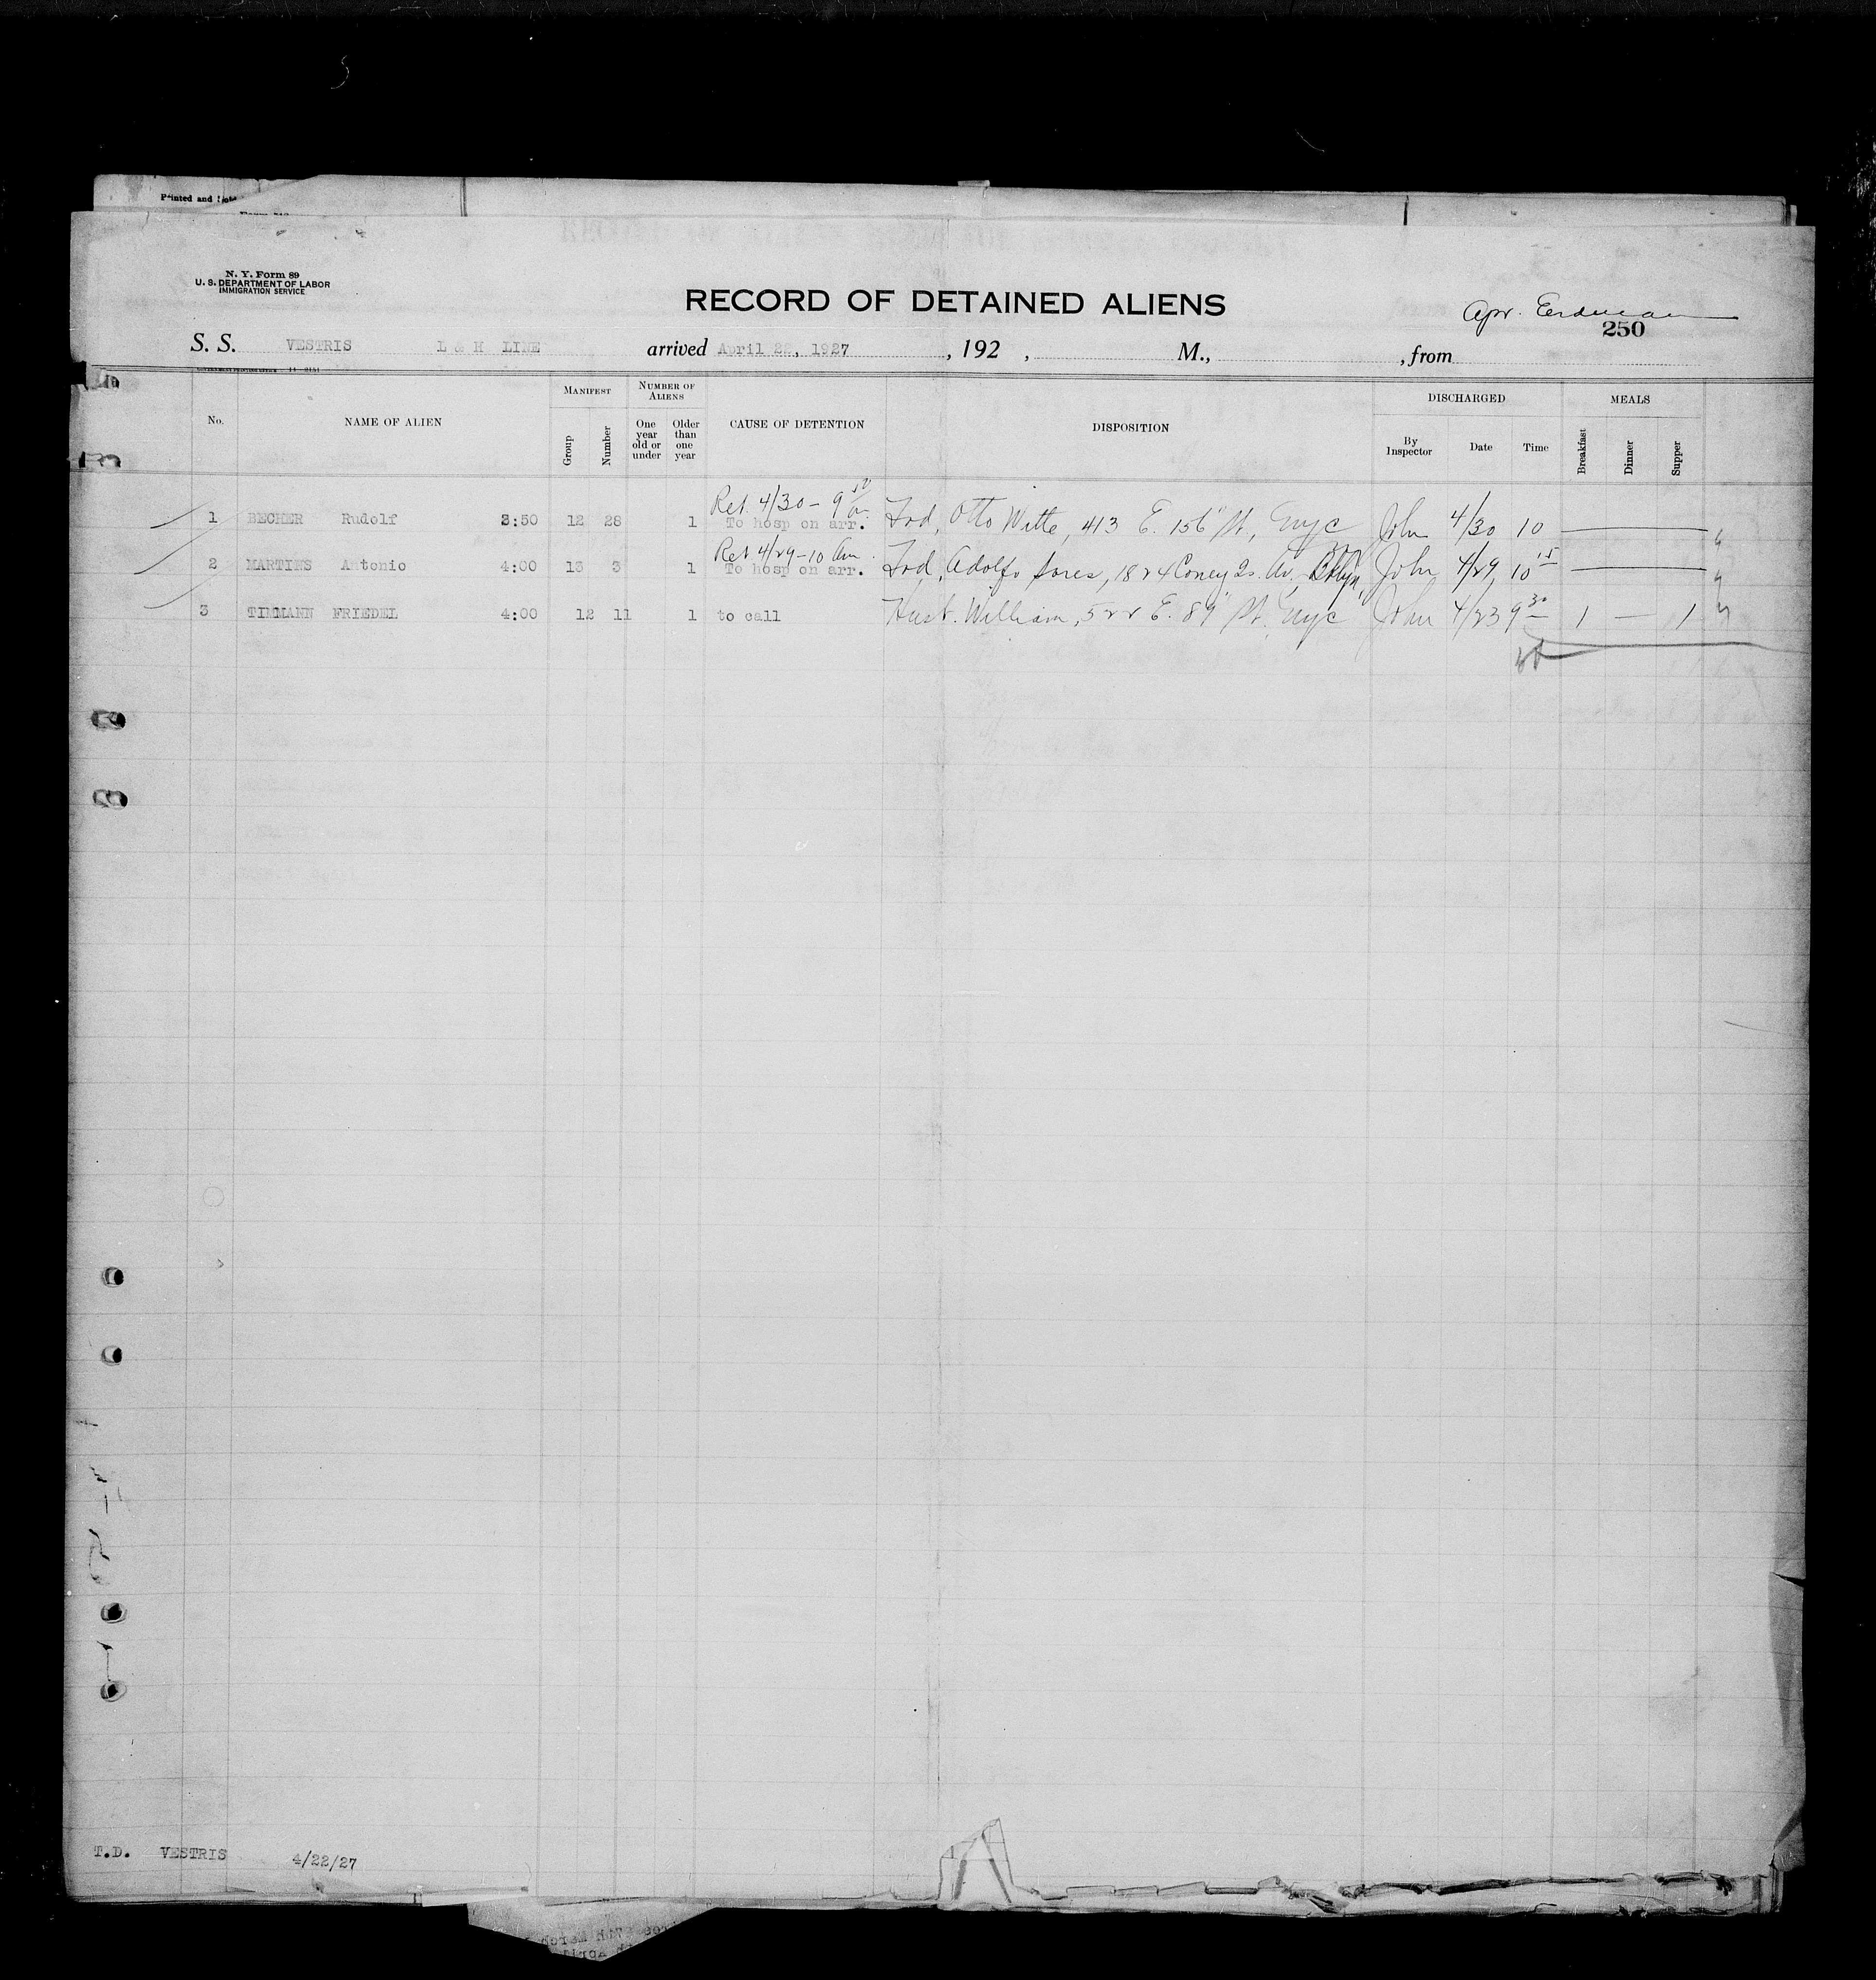 Printed and
N. Y. Form 89
U. S. DEPARTMENT OF LABOR
IMMIGRATION SERVICE
RECORD OF DETAINED ALIENS
250
S. S. VESTRIS L & H LINE arrived April 22, 1927 , 192 , M., , from
No. NAME OF ALIEN MANIFEST Group Number NUMBER OF ALIENS One year old or under Older than one year CAUSE OF DETENTION DISPOSITION DISCHARGED By Inspector Date Time MEALS Breakfast Dinner Supper
Ret. 4/30 - 9 50
1 BECHER Rudolf 3:50 12 28 1 To hosp on arr. Frd, Otto Witte, 413 E. 156" St., Nyc John 4/30 10
Ret 4/29 - 10 Am
2 MARTINS Antonio 4:00 13 3 1 To hosp on arr. Frd, Adolfo 1824 Coney Is. Av, Bklyn, John 4/29 10 15
3 TIMMANN FRIEDEL 4:00 12 11 1 to call Husb. William, 522 E. 89" St, Nyc John 4/23 9 30 1 — 1
T.D. VESTRIS 4/22/27